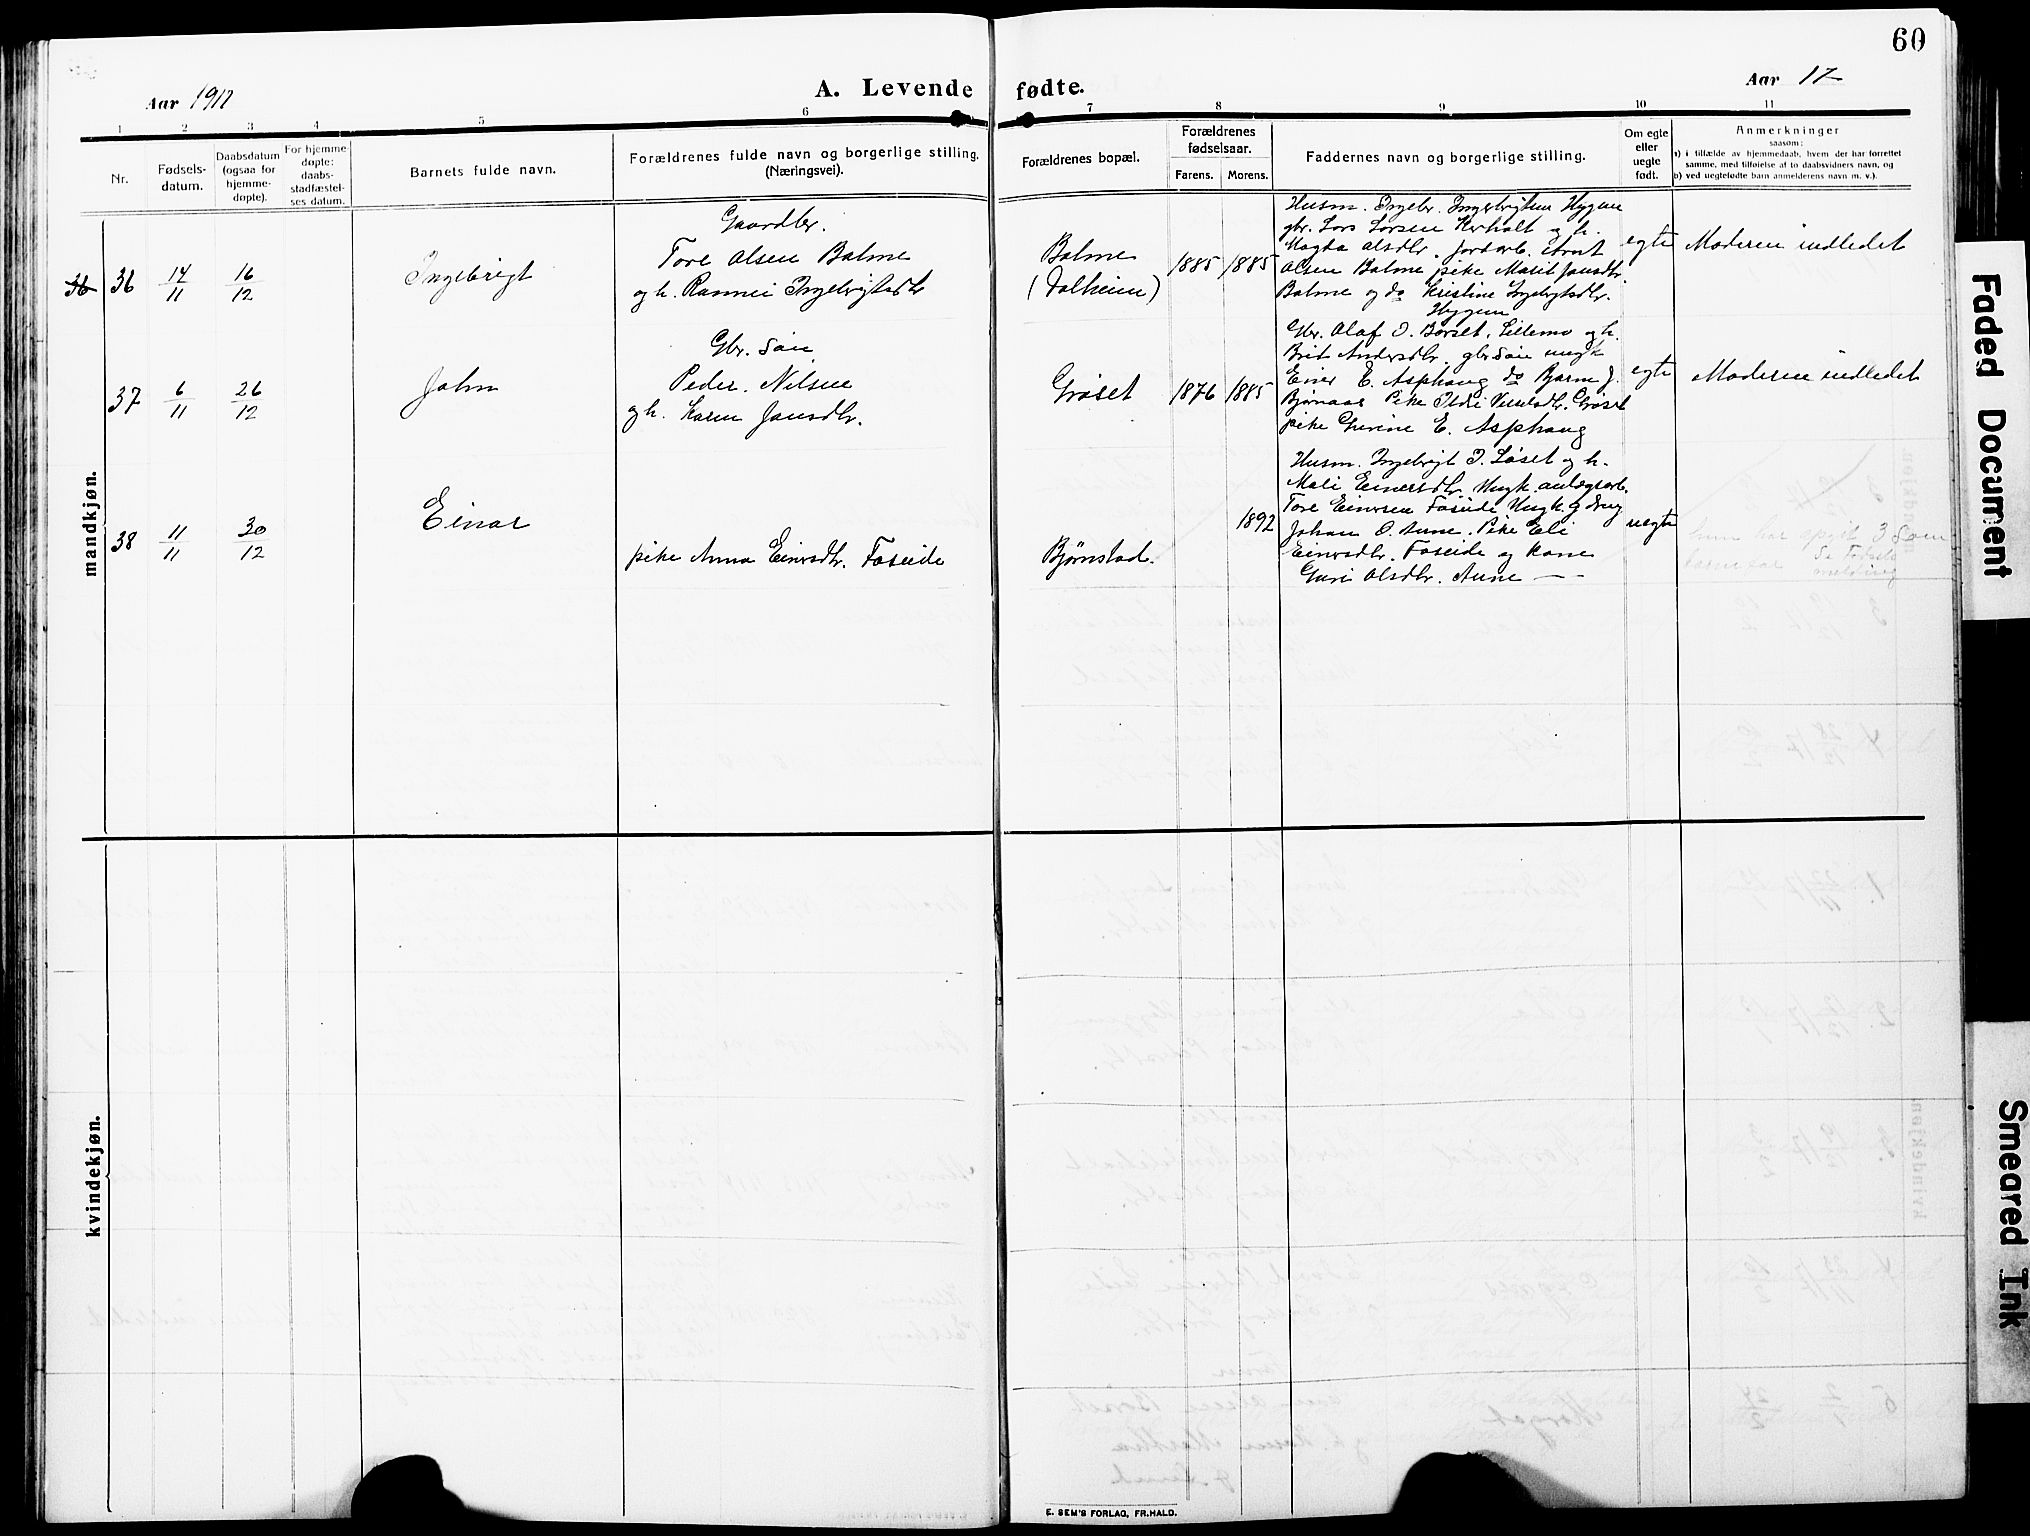 60
Aar 1917
A. Levende fødte.
Aar 17
1 2 3 4 5 6 7 8 9 10 11
Nr.
Fødsels-
datum.
Daabsdatum
(ogsaa for
hjemme-
døpte).
For hjemme
døpte:
daabs-
stadfæstel-
ses datum.
Barnets fulde navn.
Forældrenes fulde navn og borgerlige stilling.
(Næringsvei).
Forældrenes bopæl.
Forældrenes
fødselsaar.
Farens. Morens.
Faddernes navn og borgerlige stilling.
Om egte
eller
uegte
født.
Anmerkninger
saasom:
a) i tilfælde av hjemmedaab, hvem der har forrettet
samme, med tilføielse af to daabsvidners navn, og
b) ved uegtefødte barn anmelderens navn m. v.).
mandkjøn.
36 36 14/11 16/12
Ingebrigt
Gaardbr.
Tore Olsen Bolme
og h. Rannei Ingebrigtsdtr
Bolme
(Dalheim)
1885 1885
Husm. Ingebr. Ingebrigtsen Hyggen
gbr. Lars Larsen Kerholt og h.
Magda Olsdtr. Jordarb. Arnt
Olsen Bolme pike Marit Jansdtr.
Bolme og do Kristine Ingebrigtsdtr.
Hyggen
egte
Moderen indledet
37 6/11 26/12
John
Gbr. Søn
Peder Nilsen
og h. Karen Jansdtr.
Grøset
1876 1885
Gbr. Olaf O. Børset, Lillemo og h.
Brit Andersdtr. gbr søn ungk
Einar E. Asphaug do Bjarne J.
Bjørnaas Pike Ildri Nilsdtr. Grøset
pike Gurine E. Asphaug
egte
Moderen indledet
38 11/11 30/12
Einar
pike Anna Einersdtr. Foseide
Bjørnstad.
1892
Husm. Ingebrigt I. Løset og h.
Mali Einersdtr. Ungk. anlægsarb.
Tore Einersen Foseide Ungk. g.dreng
Johan O. Aune. Pike Eli
Einersdtr. Foseide og kone
Guri Olsdtr. Aune —
uegte
hun har opgit 3 som
barnefar
Se Fødsels
melding
kvindekjøn.
E. SEM'S FORLAG, FR.HALD.
Faded Document
Smeared Ink